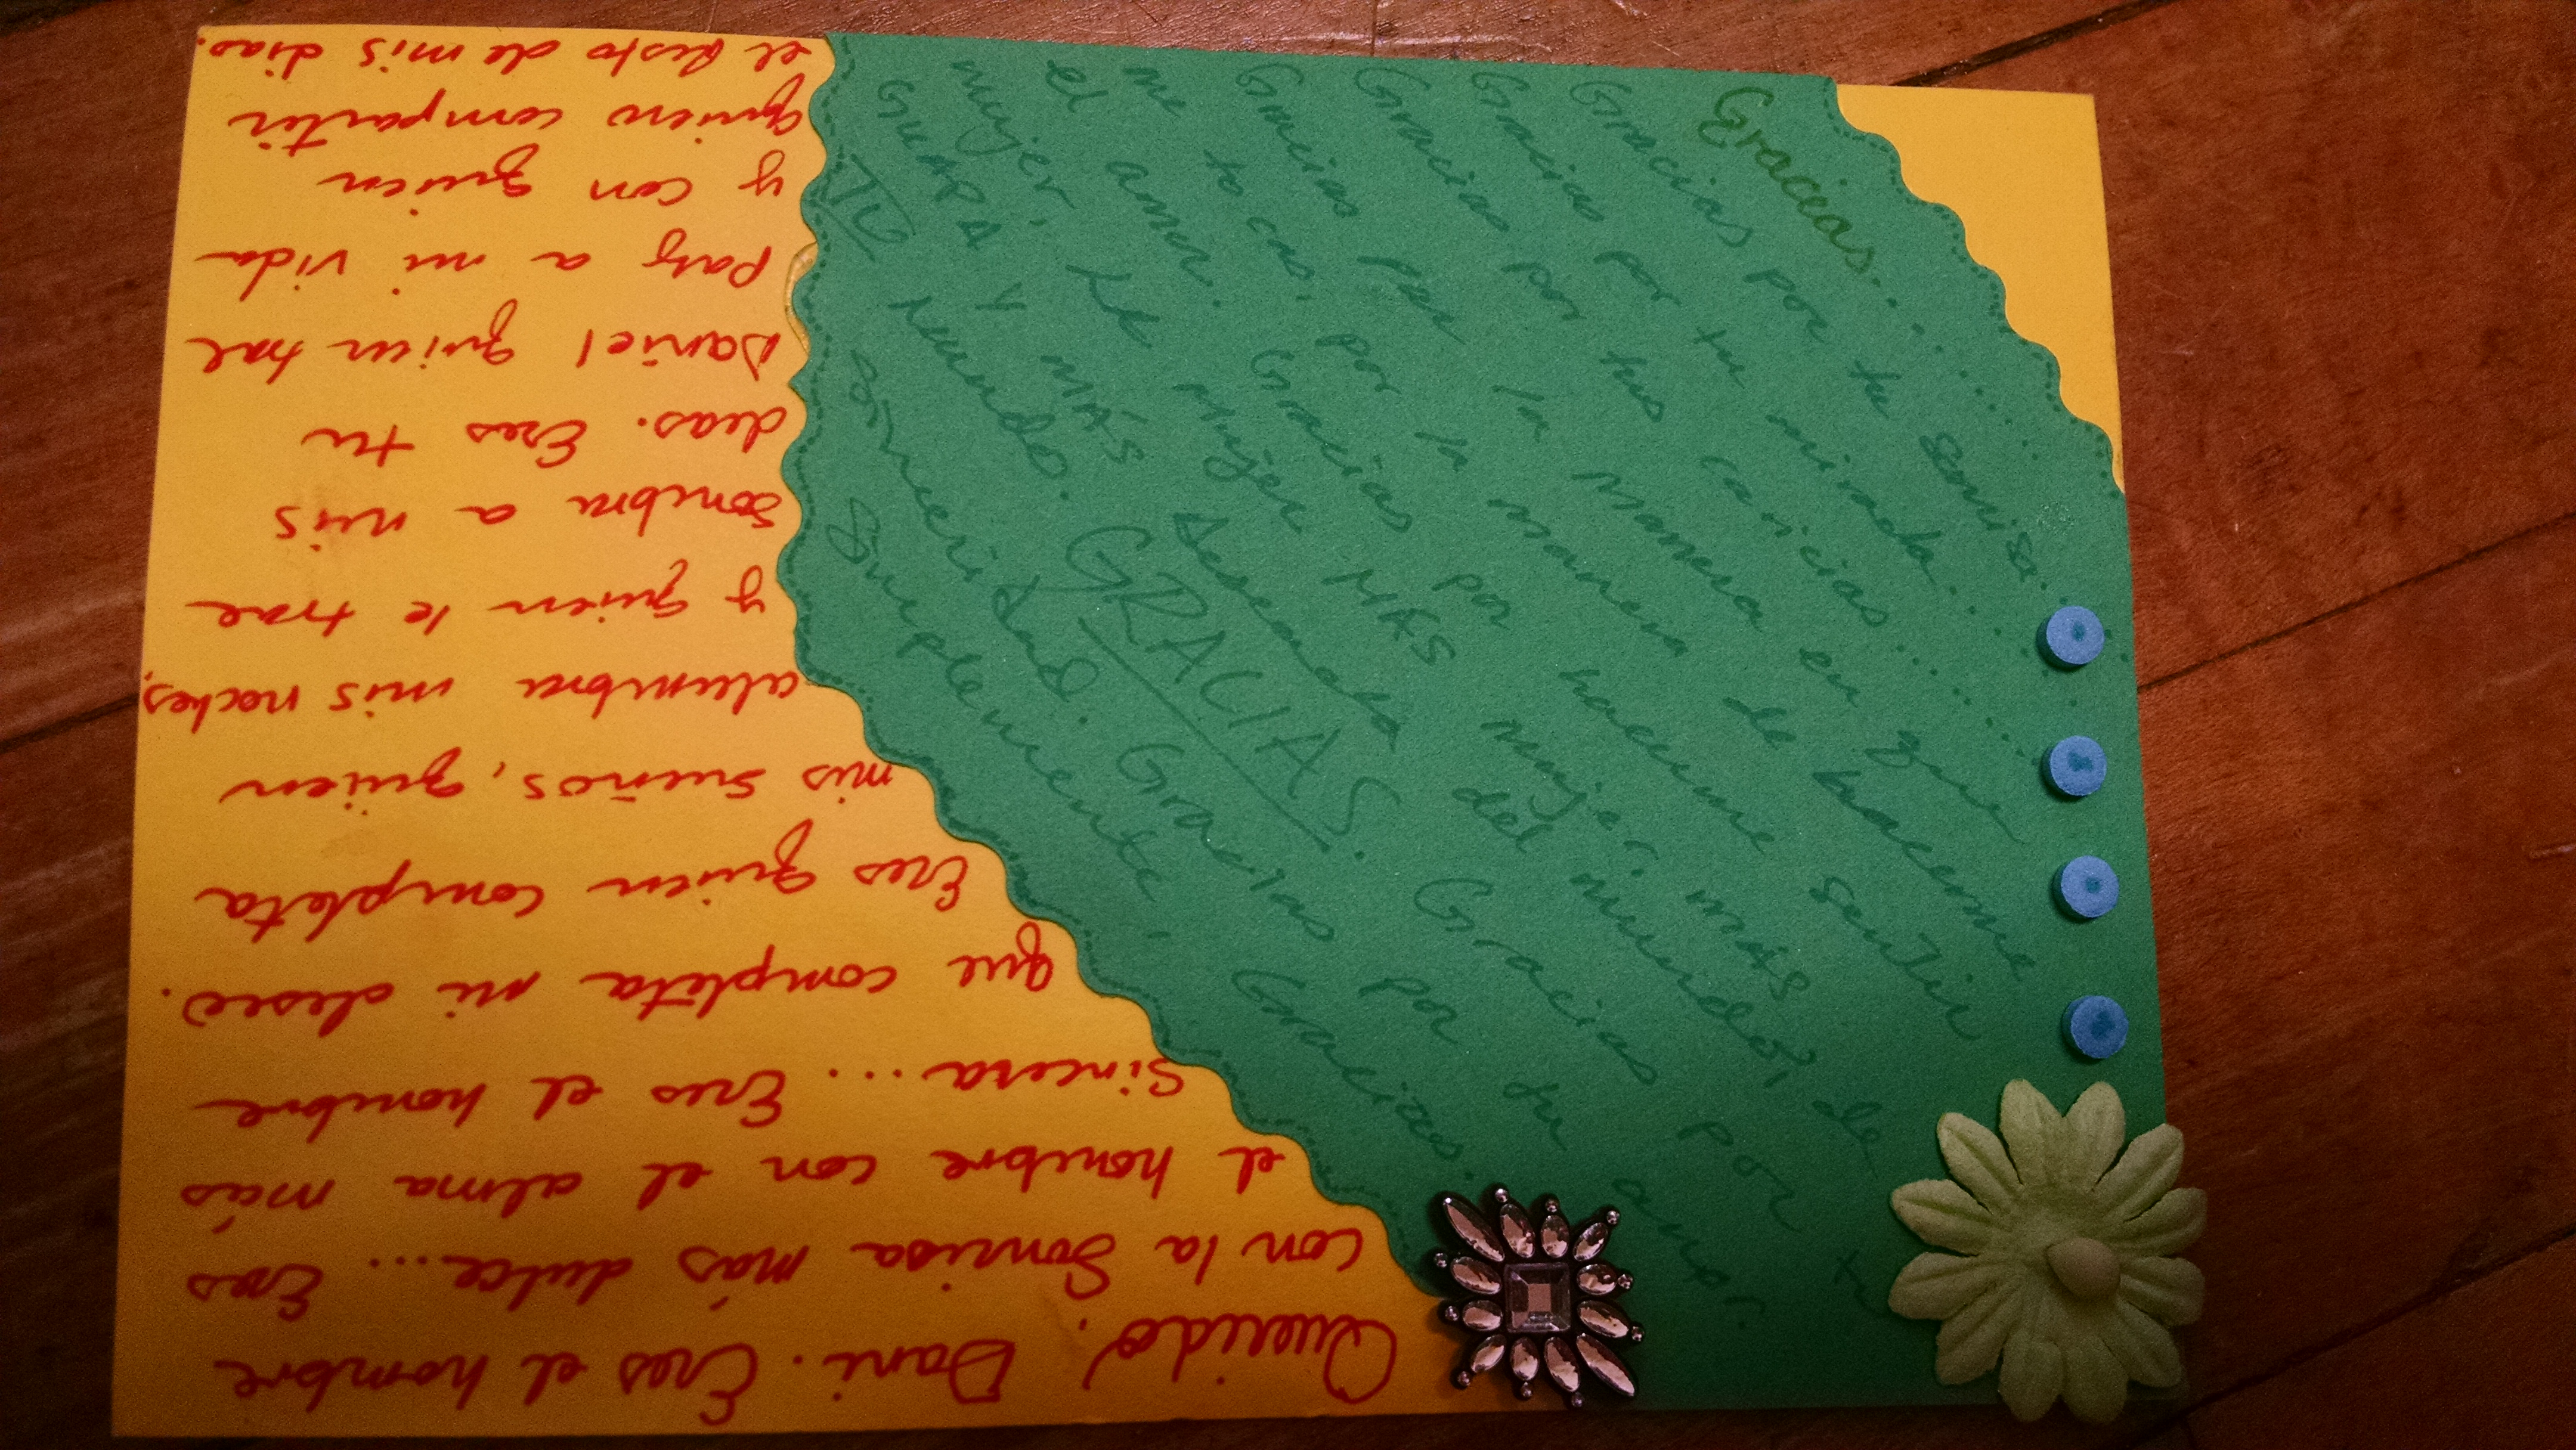 Querido, Dani. Eres el hombre
con la Sonrisa más dulce... Eres
el hombre con el alma más
Sincera... Eres el hombre
que completa mi deseo.
Eres quien completa
mis Sueños, quien
alumbra mis noches,
y quien le trae
Sombra a mis
deas. Eres tu
Daniel quien trae
Paz a mi vida
y con quien
quiero compartir
el Resto de mis dias.
Gracias...
Gracias por tu sonrisa...
Gracias por tu mirada...
Gracias por tus caricias...
Gracias por la manera en que
me tocas, por la manera de hacerme
el amor. Gracias por hacerme sentir
mujer, la mujer MÁS mujer, MÁS
GUAPA Y MÁS deseada del mundo, de tu
TU mundo. GRACIAS. Gracias por
sinceridad. Gracias por tu amor.
Simplemente, Gracias.